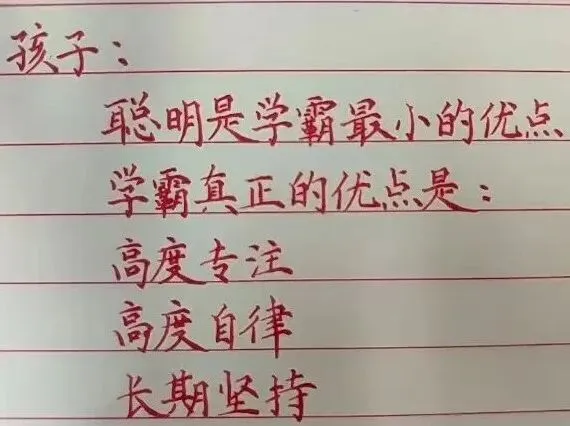 孩子：
聪明是学霸最小的优点
学霸真正的优点是：
高度专注
高度自律
长期坚持